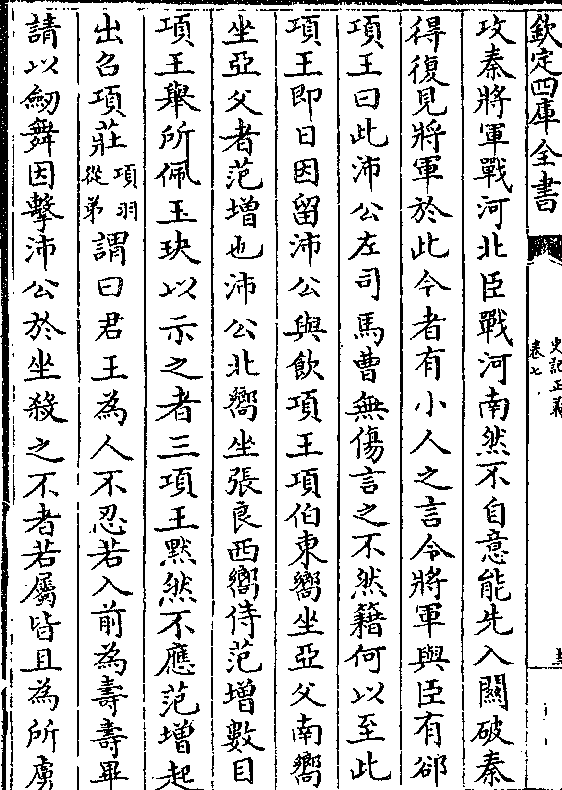 欽定四庫全書
史記正義
卷七
攻秦將軍戰河北臣戰河南然不自意能先入關破秦
得復見將軍於此今者有小人之言令將軍與臣有郤
項王曰此沛公左司馬曹無傷言之不然籍何以至此
項王即日因留沛公與飲項王項伯東嚮坐亞父南嚮
坐亞父者范增也沛公北嚮坐張良西嚮侍范增數目
項王舉所佩玉玦以示之者三項王黙然不應范增起
出召項莊項羽從弟謂曰君王為人不忍若入前為壽壽畢
請以劒舞因擊沛公於坐殺之不者若屬皆且為所虜